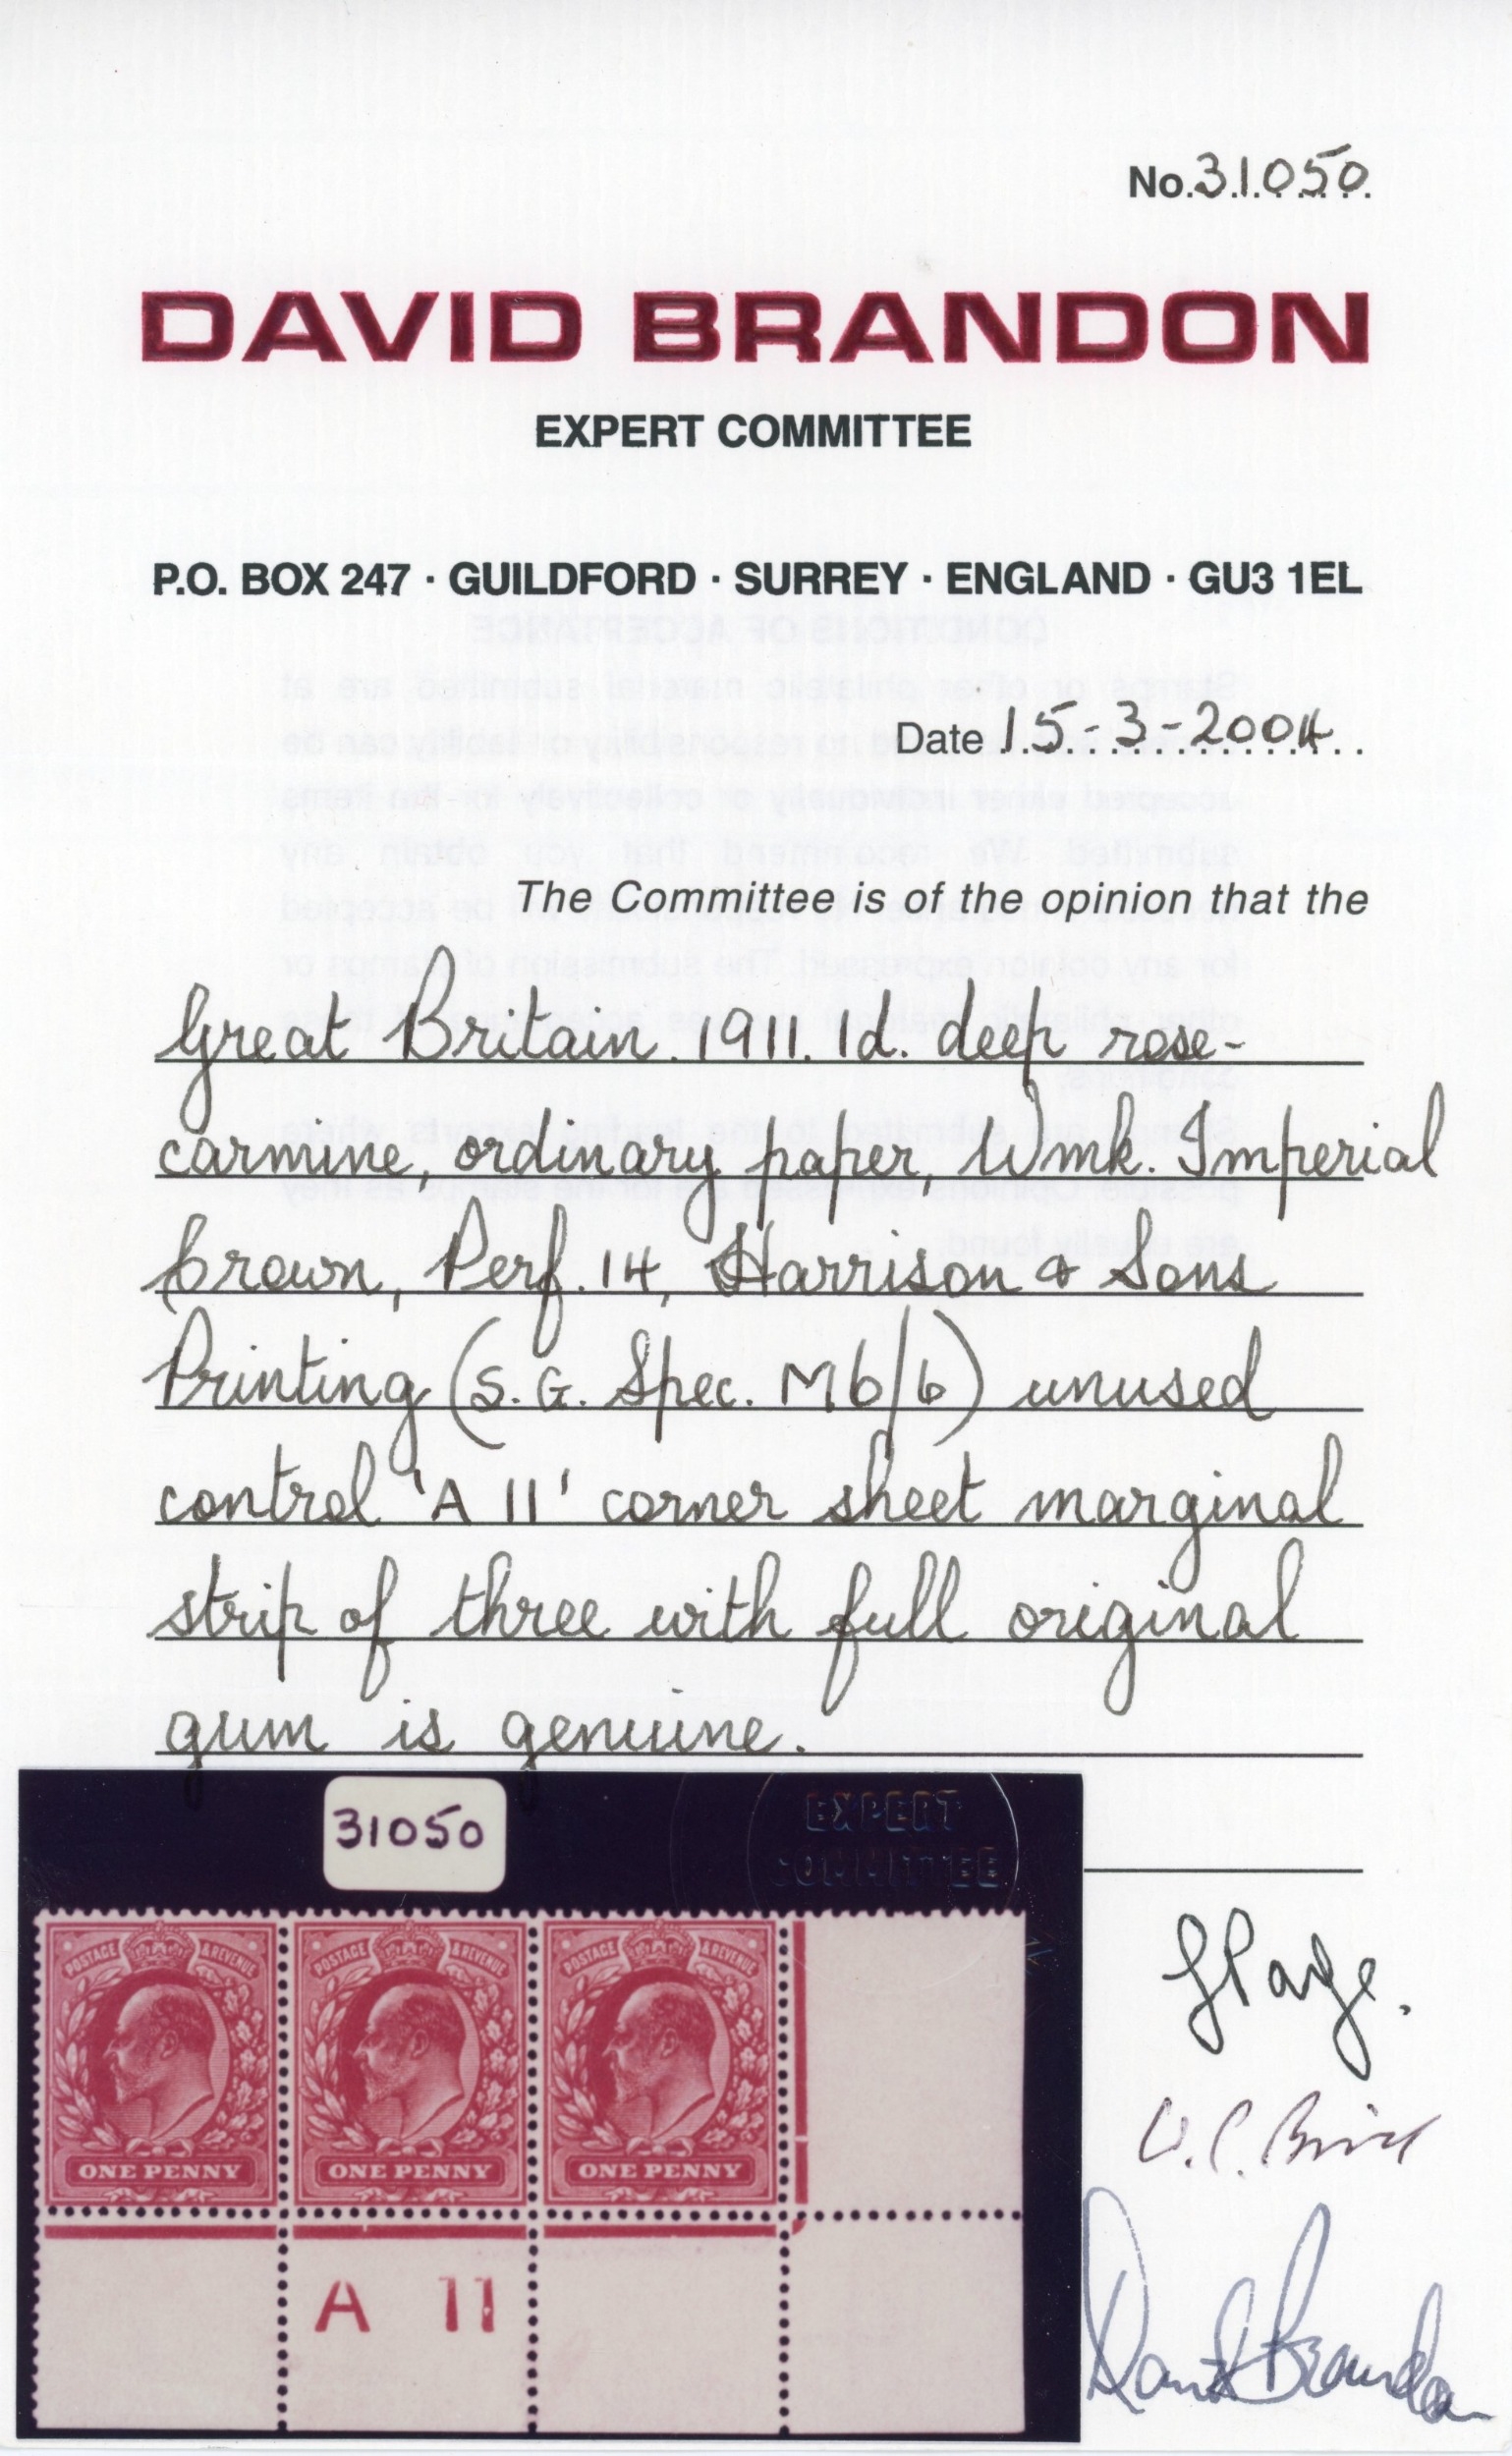 No. 31050
DAVID BRANDON
EXPERT COMMITTEE
P.O. BOX 247 · GUILDFORD · SURREY · ENGLAND · GU3 1EL
CONDITIONS OF ACCEPTANCE
Date 15-3-2004
The Committee is of the opinion that the
Great Britain. 1911. 1d. deep rose-
carmine, ordinary paper, Wmk. Imperial
Crown, Perf. 14, Harrison & Sons
Printing (S.G. Spec. M6/6) unused
control 'A 11' corner sheet marginal
strip of three with full original
gum is genuine.
31050
EXPERT
COMMITTEE
POSTAGE & REVENUE POSTAGE & REVENUE POSTAGE & REVENUE
ONE PENNY ONE PENNY ONE PENNY
A 11
David Brandon